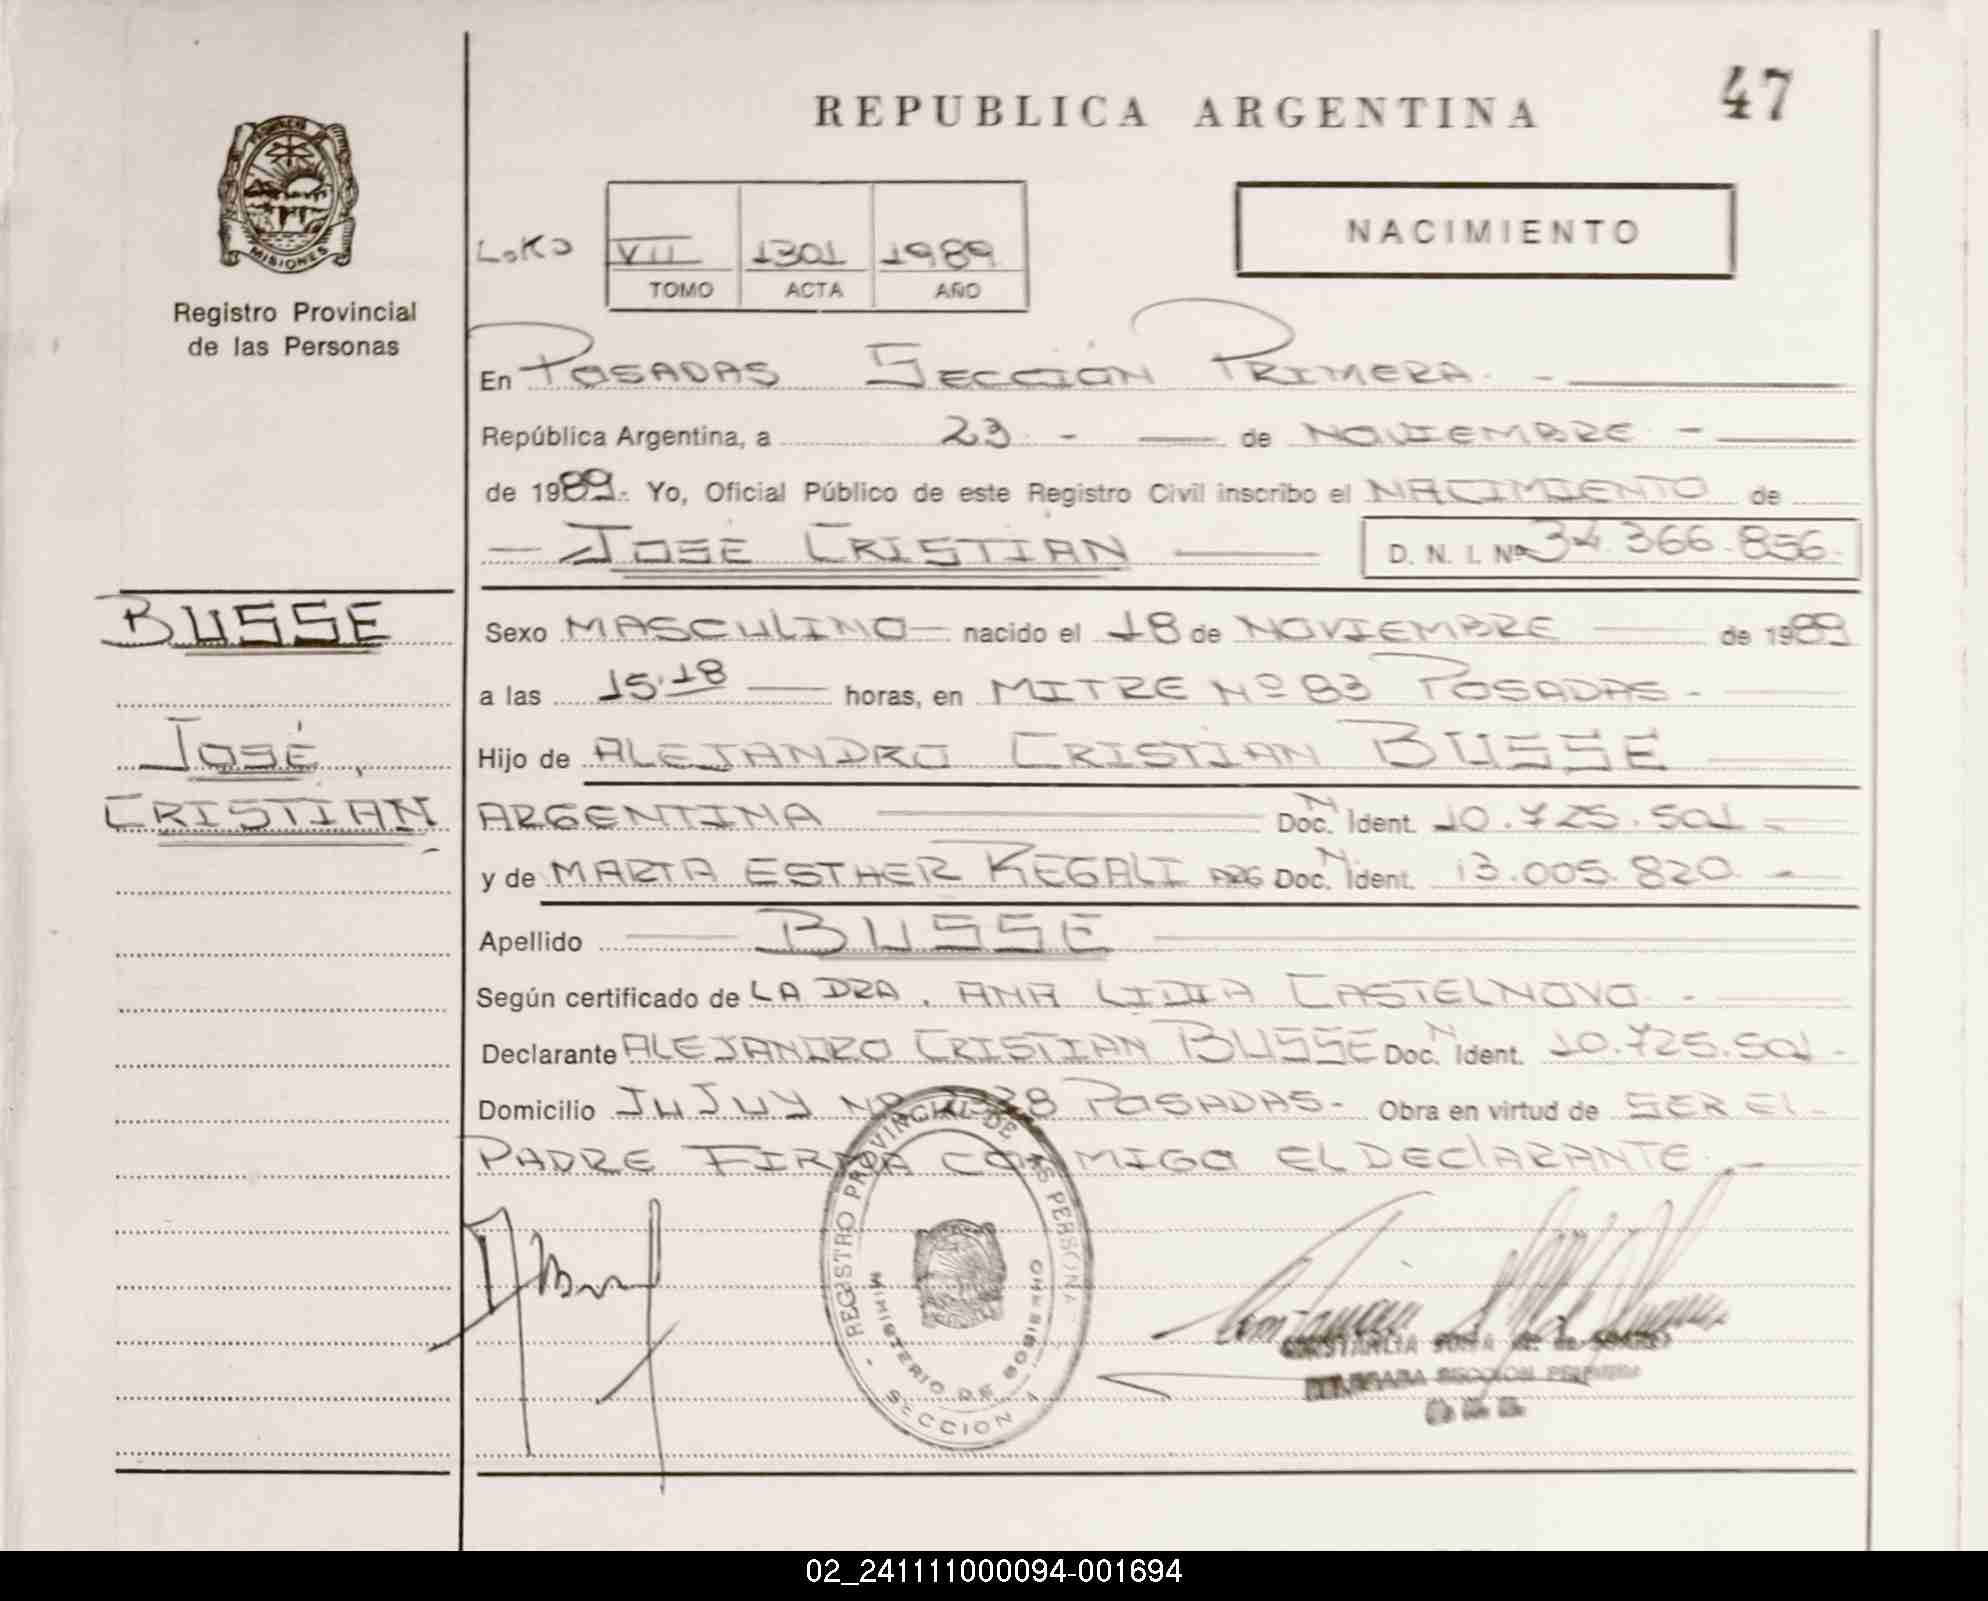 REPUBLICA ARGENTINA
47
NACIMIENTO
VII 1301 1989
TOMO ACTA AÑO
MISIONES
Registro Provincial
de las Personas
En POSADAS SECCIÓN PRIMERA.-
República Argentina, a 23 - de NOVIEMBRE -
de 1989.- Yo, Oficial Público de este Registro Civil inscribo el NACIMIENTO de
JOSÉ CRISTIAN
D. N. I. Nº 34.366.856.
BUSSE
JOSÉ,
CRISTIAN
Sexo MASCULINO nacido el 18 de NOVIEMBRE de 1989
a las 15.18 horas, en MITRE Nº 83 POSADAS -
Hijo de ALEJANDRO CRISTIAN BUSSE
ARGENTINA Doc. N Ident. 10.725.501 -
y de MARTA ESTHER REGALI ARG Doc. N Ident. 13.005.820 -
Apellido BUSSE
Según certificado de LA DRA. ANA LIDIA CASTELNOVO -
Declarante ALEJANDRO CRISTIAN BUSSE Doc. N Ident. 10.725.501 -
Domicilio JUJUY Nº POSADAS - Obra en virtud de SER EL
PADRE FIRMA CONMIGO EL DECLARANTE.-
REGISTRO PROVINCIAL DE LAS PERSONAS
MINISTERIO DE GOBIERNO
SECCION 1
SECCION
02_241111000094-001694